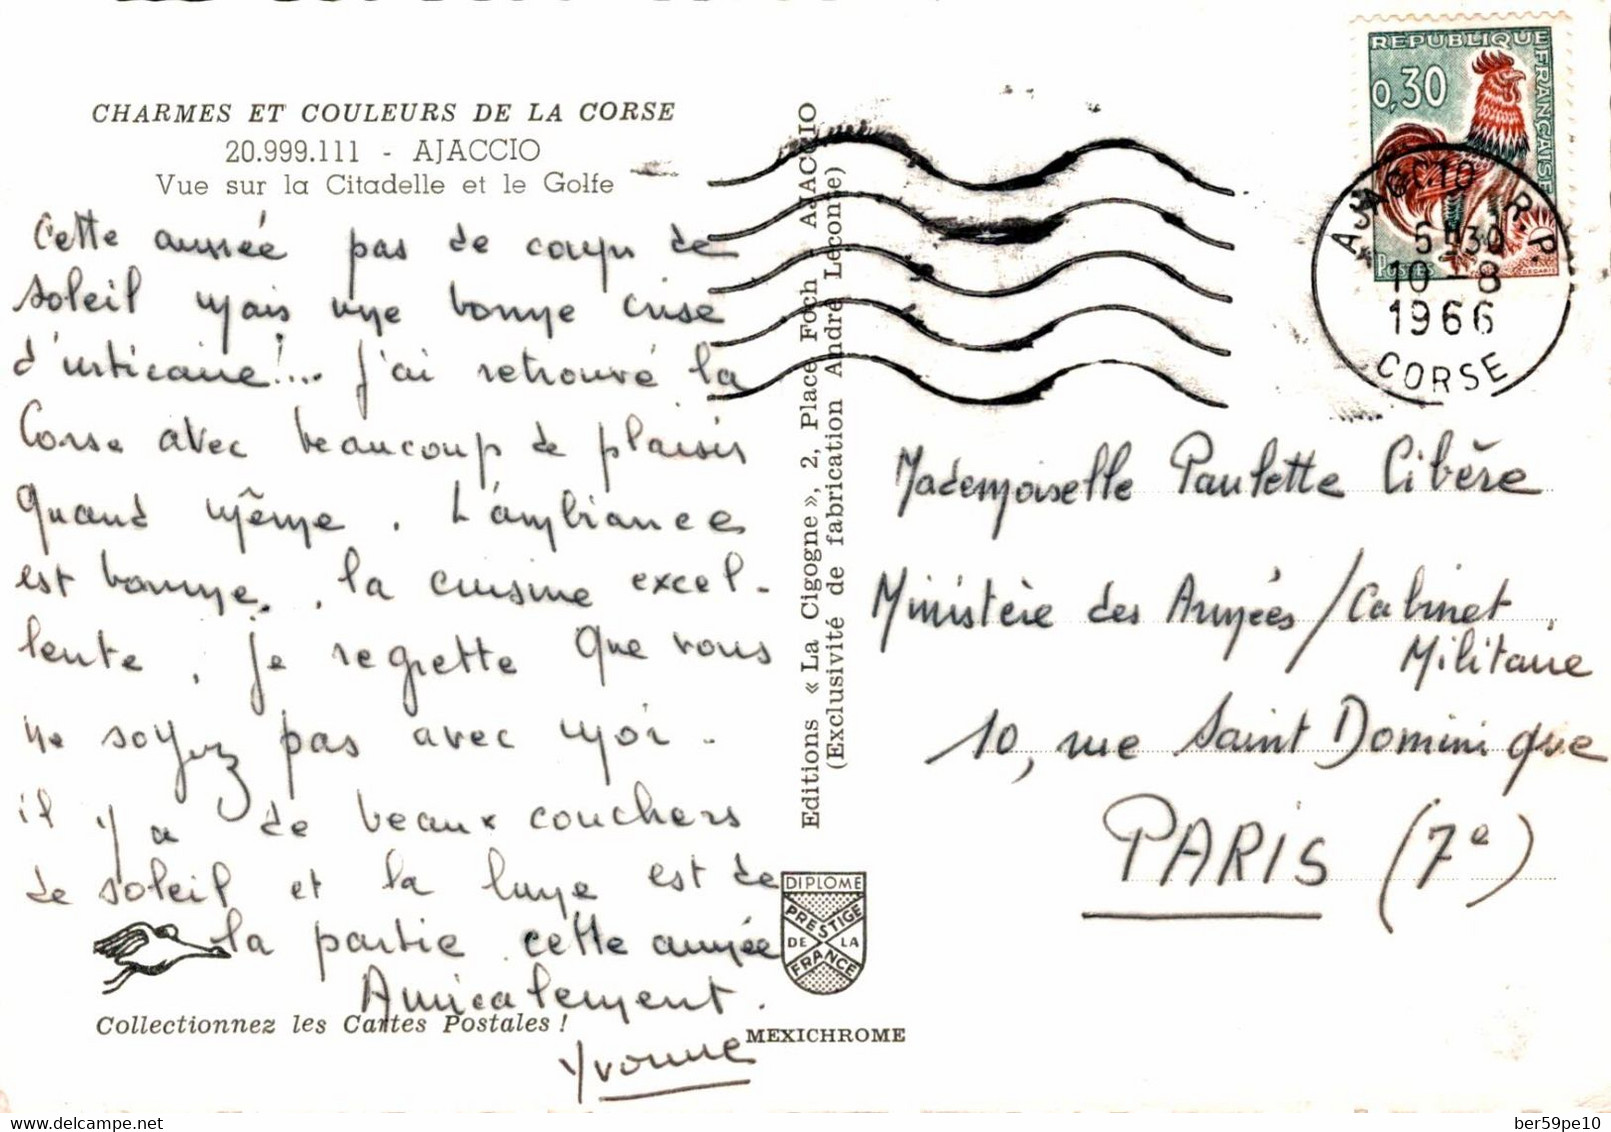 CHARMES ET COULEURS DE LA CORSE
20.999.111 - AJACCIO
Vue sur la Citadelle et le Golfe
Cette année pas de coup de
soleil mais une bonne crise
d'urticaire!... J'ai retrouvé la
Corse avec beaucoup de plaisir
quand même. L'ambiance
est bonne, la cuisine excel-
lente, je regrette que vous
ne soyez pas avec moi.
il y a de beaux couchers
de soleil et la lune est de
la partie cette année
Amicalement.
Yvonne
Collectionnez les Cartes Postales !
Editions « La Cigogne », 2, Place Foch AJACCIO
(Exclusivité de fabrication André Leconte)
DIPLOME
PRESTIGE
DE LA
FRANCE
MEXICHROME
REPUBLIQUE FRANÇAISE
0,30
POSTES
AJACCIO R.P.
5H30
10-8
1966
CORSE
Mademoiselle Paulette Cibère
Ministère des Armées/Cabinet
Militaire
10, rue Saint Dominique
PARIS (7e)
delcampe.net
ber59pe10